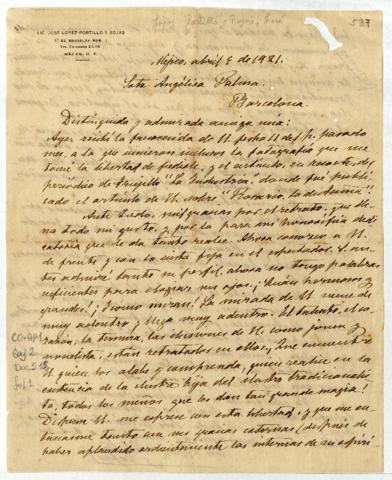 Lopez Portillo y Rojas, José
537
LIC. JOSÉ LOPEZ PORTILLO Y ROJAS
MÉXICO, D. F.
Méjico, abril 8 de 1921.
Srta. Angélica Palma.
Barcelona.
Distinguida y admirada amiga mía:
Ayer recibí la favorecida de U. fecha 11 del p. pasado
mes, a la que vinieron inclusos la fotografía que me
tomé la libertad de pedirle, y el artículo, en recorte, del
periódico de Trujillo "La Industria", donde fué publi
cado el artículo de U. sobre "Rosario la de Acuña".
Ante todo, mil gracias por el retrato, que lle
na todo mi gusto, y por la para mí honrosísima dedi
catoria que le da tanto realce. Ahora conozco a U.
de frente y con la vista fija en el espectador. Si an
tes admiré tanto su perfil, ahora no tengo palabras
suficientes para elogiar sus ojos. ¡Cuán hermosos y
grandes! ¡Y cómo miran! La mirada de U. viene de
muy adentro y llega muy adentro. El talento, el co
razón, la ternura, las ilusiones de U. como joven y
novelista, están retratados en ellos. Que encuentre
U. quien los alabe y comprenda, quien realice en la
existencia de la ilustre hija del ilustre tradicionalis
ta, todos los sueños que les dan tan grande magia!
Dispense U. me exprese con esta libertad, y que me en
tusiasme tanto con sus gracias externas (después de
haber aplaudido ardientemente las internas de su espíri
CO-AP1
Caj 2
Doc 513
fol 1